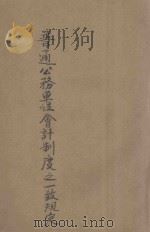 普通公務單位會計制度之一致規定